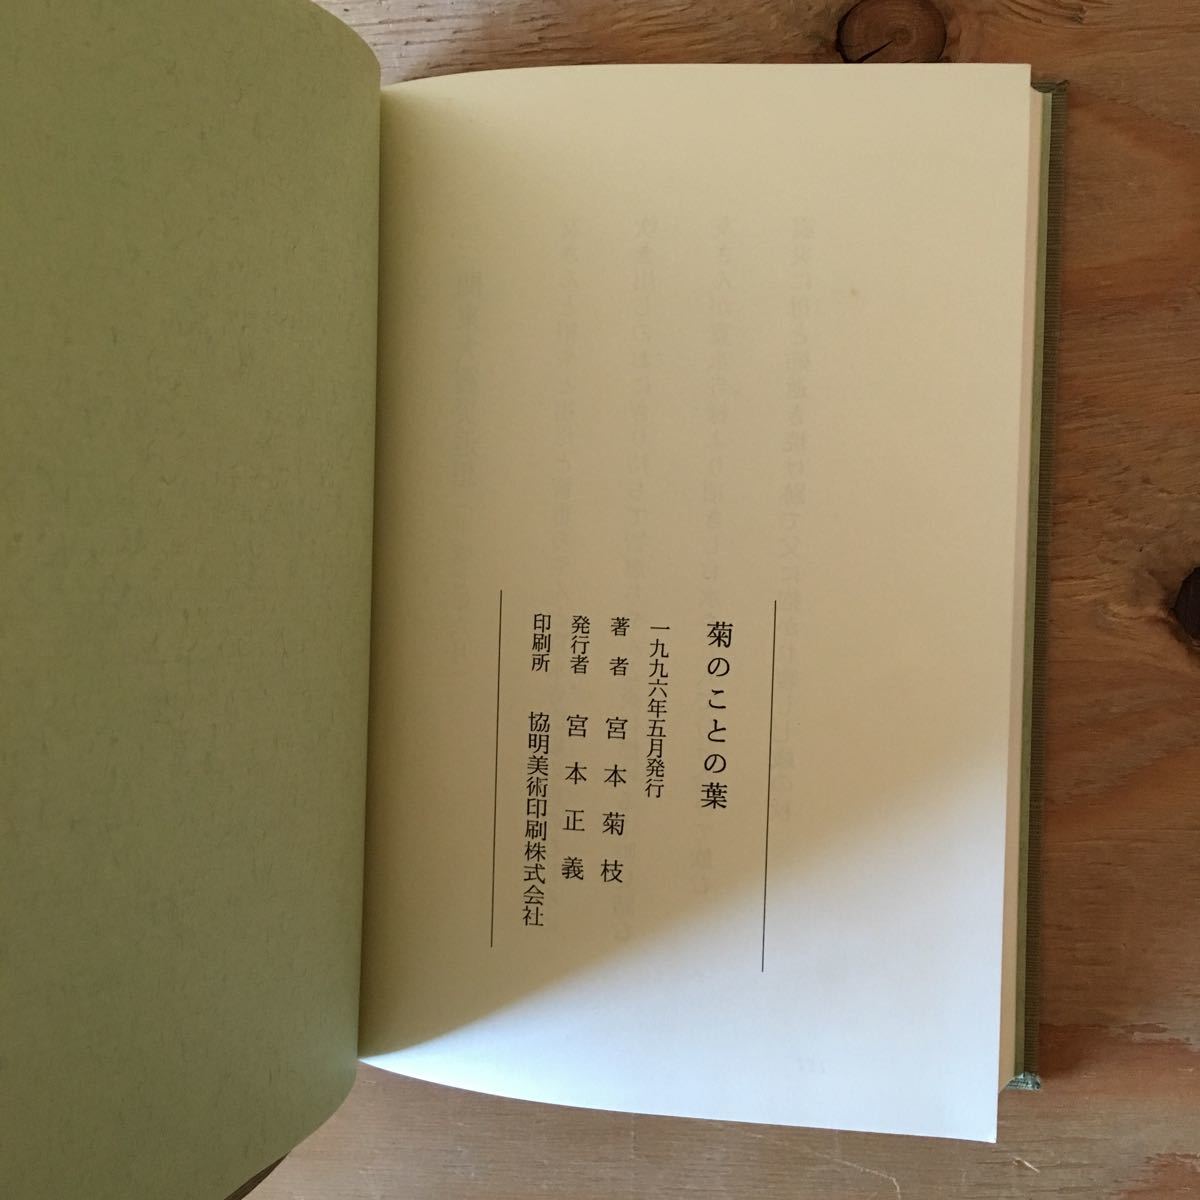 菊のことの葉
一九九六年五月発行
著者 宮本菊枝
発行者 宮本正義
印刷所 協明美術印刷株式会社